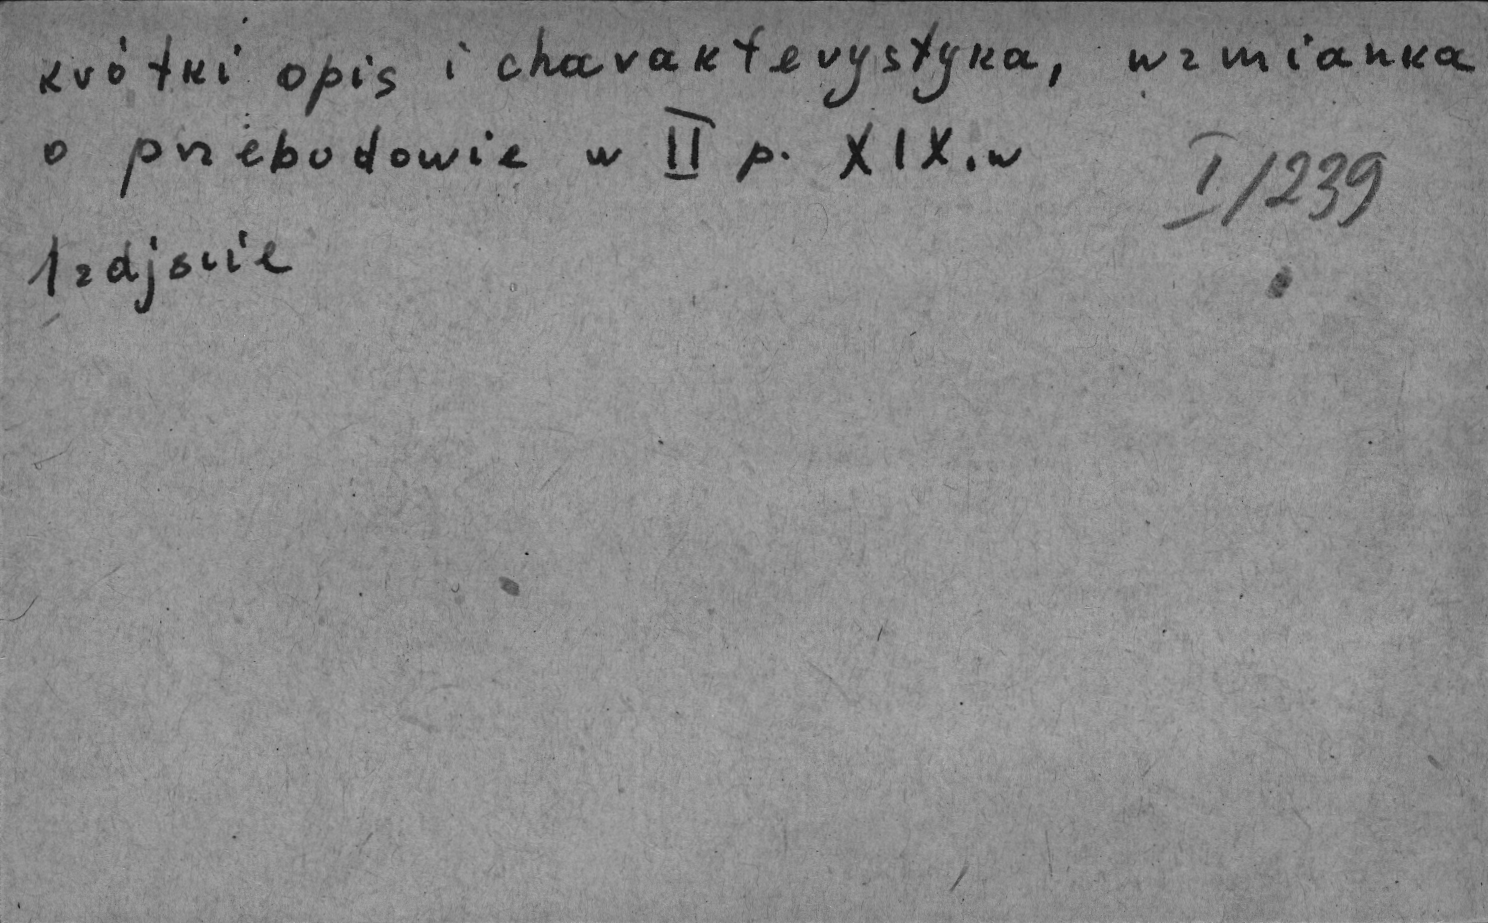 krótki opis i charakterystyka, wzmianka
o przebudowie w II p. XIX.w
I/239
1 zdjęcie